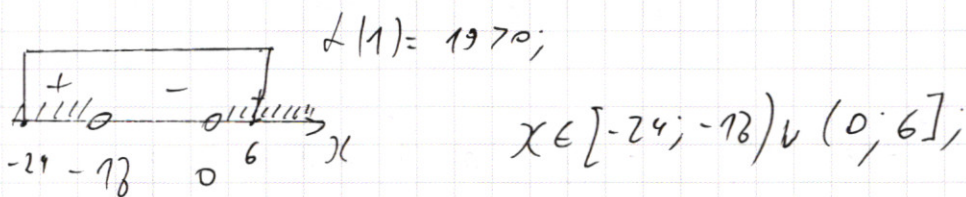 f(1) = 19 > 0;
+ -  +
-24 -18 0 6 x
x ∈ [-24; -18) ∪ (0; 6];